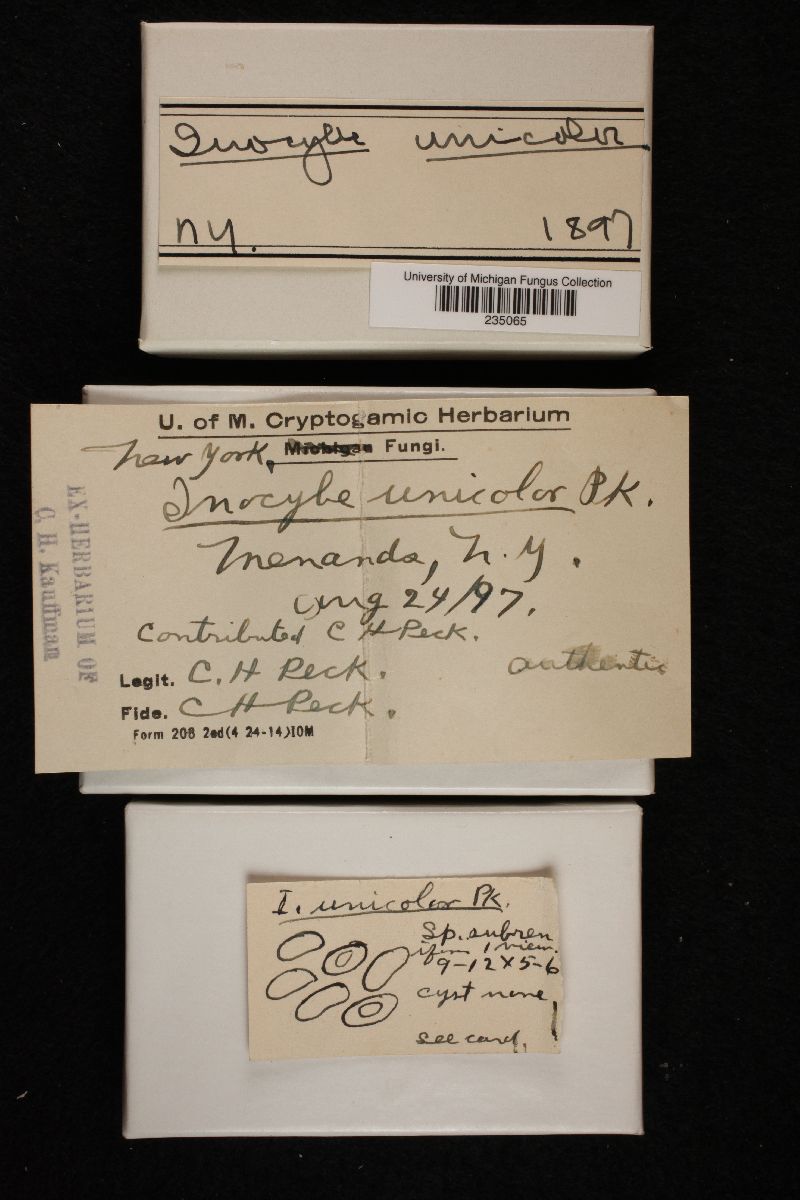 Inocybe unicolor
NY. 1897
University of Michigan Fungus Collection
235065
U. of M. Cryptogamic Herbarium
New York, Michigan Fungi.
Inocybe unicolor Pk.
Menands, N.Y.
Aug 24/97.
Contributed C H Peck.
authentic
Legit. C. H Peck.
Fide. C H Peck.
Form 206 2ed(4 24-14)10M
EX-HERBARIUM OF
C. H. Kauffman
I. unicolor Pk.
Sp. subren
ifm 1 view.
9-12 x 5-6
cyst none
see card.